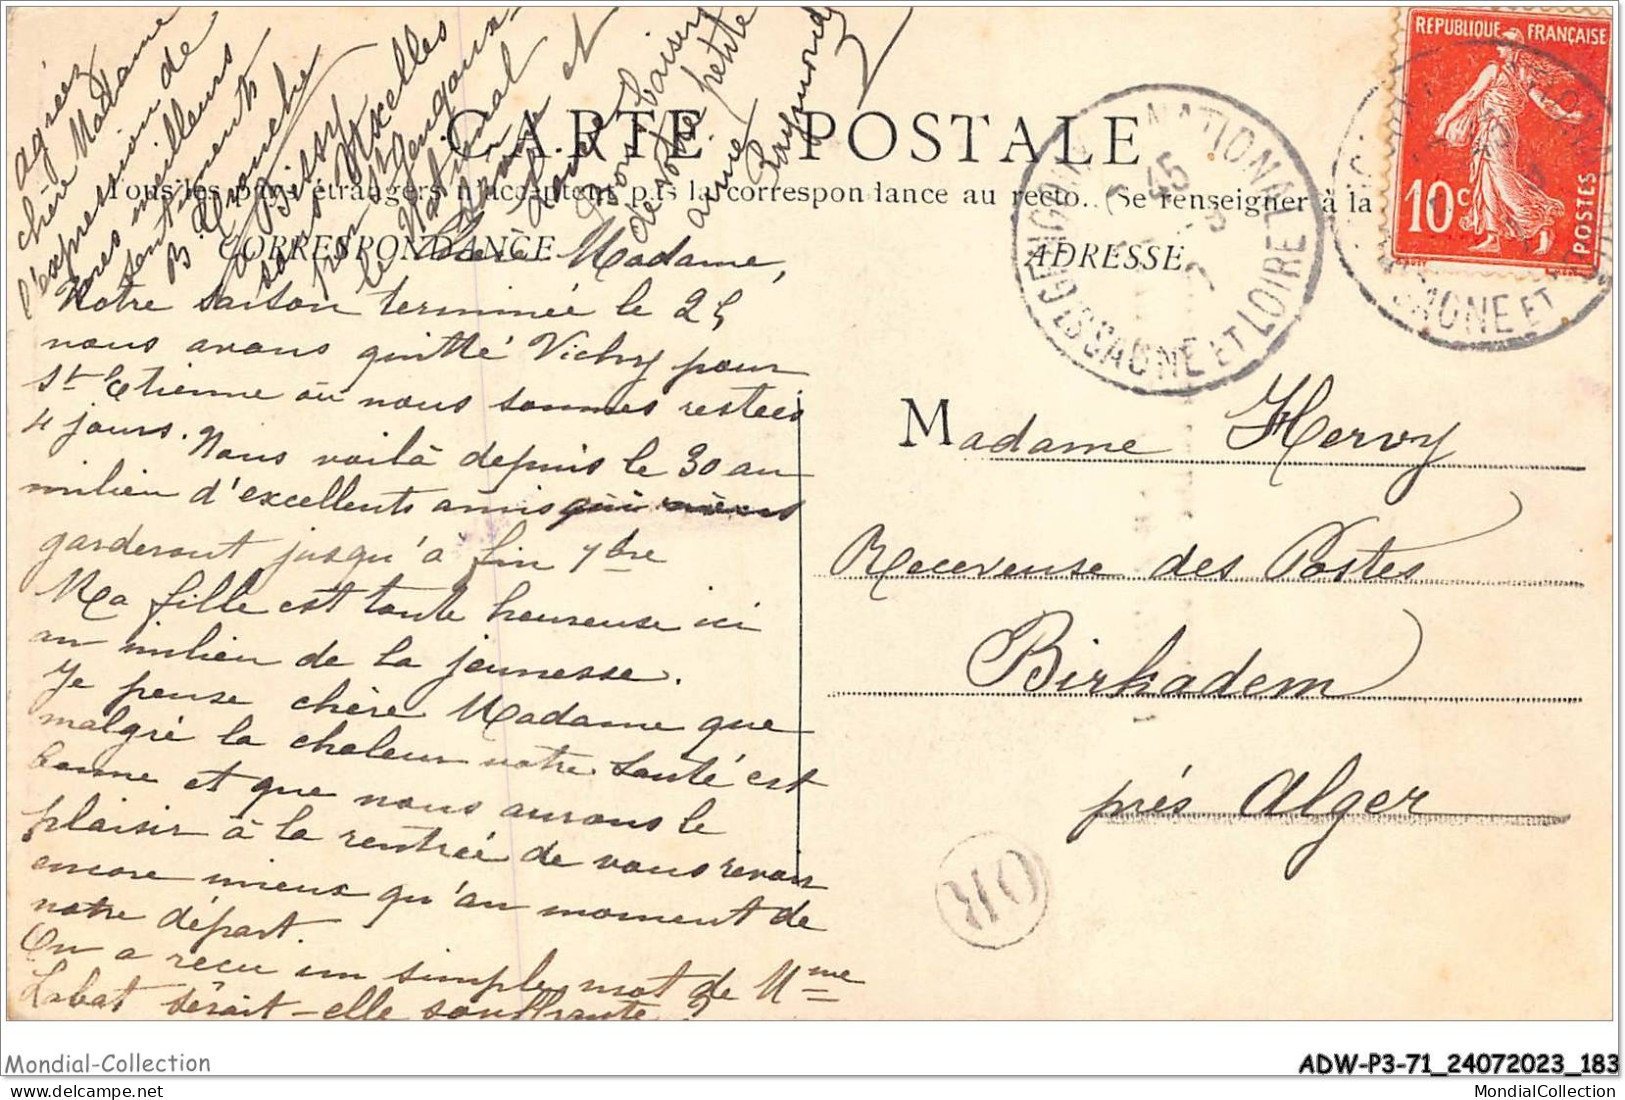 REPUBLIQUE FRANÇAISE
10c
POSTES
CARTE POSTALE
Tous les pays étrangers n'acceptent pas la correspondance au recto. (Se renseigner à la
CORRESPONDANCE
ADRESSE
ST GENGOUX LE NATIONAL
SAONE ET LOIRE
OR
Chère Madame,
Notre saison terminée le 25
nous avons quitté Vichy pour
St Etienne où nous sommes restées
4 jours. Nous voilà depuis le 30 au
milieu d'excellents amis qui nous
garderont jusqu'à fin 7bre
Ma fille est toute heureuse ici
au milieu de la jeunesse.
Je pense chère Madame que
malgré la chaleur votre santé est
bonne et que nous aurons le
plaisir à la rentrée de vous revoir
encore mieux qu'au moment de
notre départ.
On a reçu un simple mot de Mme
Labat serait-elle souffrante ?
agréez
chère Madame
l'expression de
mes meilleurs
sentiments
à Bissy
sous Uxelles
près St Gengoux-
le National
Saône et
Loire
Bons baisers
de votre petite
amie
Raymonde
Madame Hervy
Receveuse des Postes
Birkadem
près Alger
Mondial-Collection
ADW-P3-71_24072023_183
MondialCollection
MondialCollection